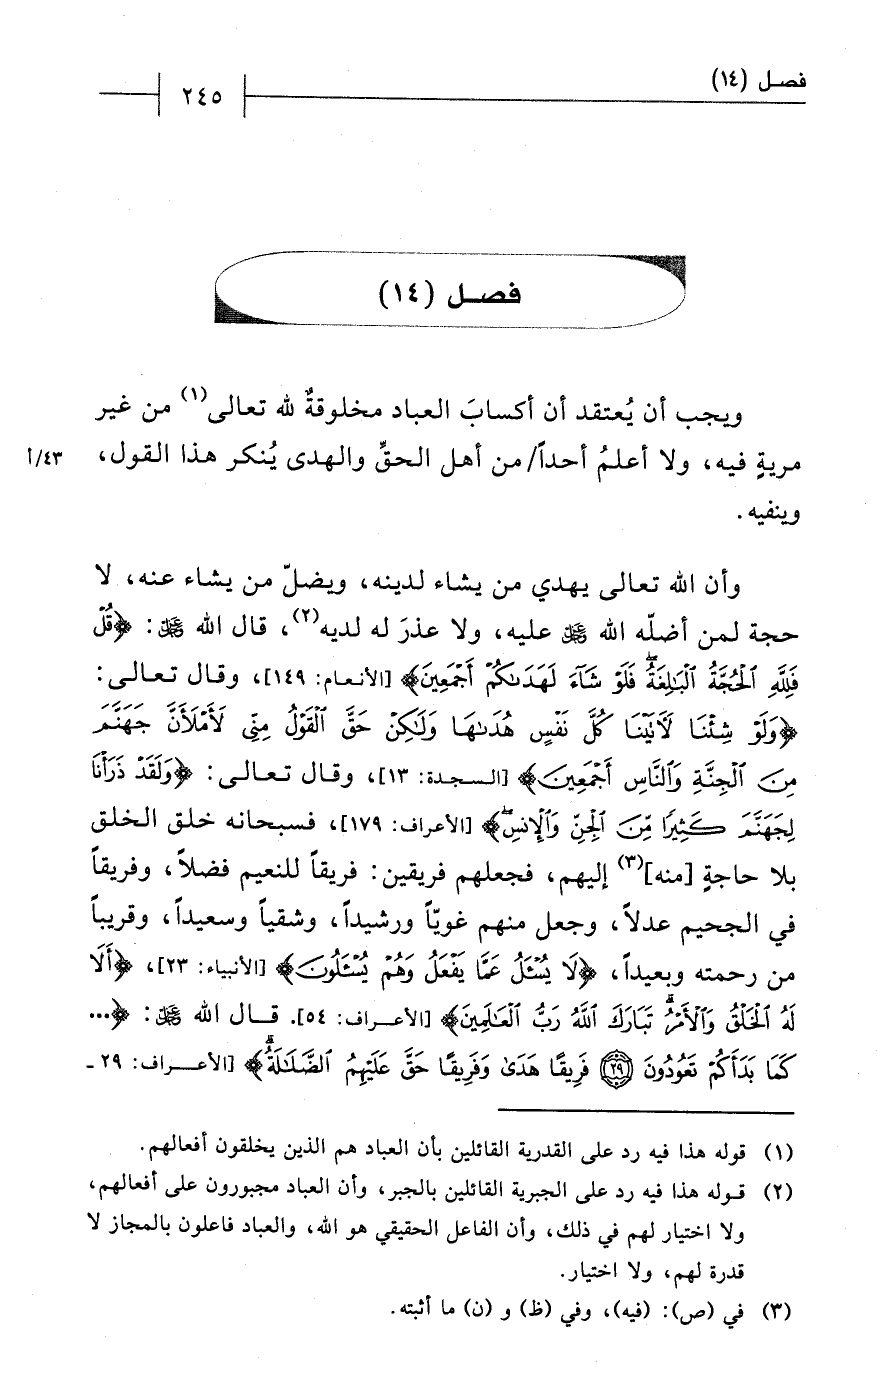 فصل (١٤)
٢٤٥
فصل (١٤)
ويجب أن يُعتقد أن أكسابَ العباد مخلوقةٌ لله تعالى(١) من غير
مريةٍ فيه، ولا أعلمُ أحداً/ من أهل الحقِّ والهدى يُنكر هذا القول،
٤٣/أ
وينفيه.
وأن الله تعالى يهدي من يشاء لدينه، ويضلّ من يشاء عنه، لا
حجة لمن أضلّه الله ﷻ عليه، ولا عذرَ له لديه(٢)، قال الله ﷻ: ﴿قُلْ
فَلِلَّهِ الْحُجَّةُ الْبَالِغَةُ ۖ فَلَوْ شَاءَ لَهَدَىٰكُمْ أَجْمَعِينَ﴾ [الأنعام: ١٤٩]، وقال تعالى:
﴿وَلَوْ شِئْنَا لَآتَيْنَا كُلَّ نَفْسٍ هُدَىٰهَا وَلَٰكِنْ حَقَّ الْقَوْلُ مِنِّي لَأَمْلَأَنَّ جَهَنَّمَ
مِنَ الْجِنَّةِ وَالنَّاسِ أَجْمَعِينَ﴾ [السجدة: ١٣]، وقال تعالى: ﴿وَلَقَدْ ذَرَأْنَا
لِجَهَنَّمَ كَثِيرًا مِّنَ الْجِنِّ وَالْإِنسِ ۖ﴾ [الأعراف: ١٧٩]، فسبحانه خلق الخلق
بلا حاجةٍ [منه](٣) إليهم، فجعلهم فريقين: فريقاً للنعيم فضلاً، وفريقاً
في الجحيم عدلاً، وجعل منهم غويّاً ورشيداً، وشقياً وسعيداً، وقريباً
من رحمته وبعيداً، ﴿لَا يُسْئَلُ عَمَّا يَفْعَلُ وَهُمْ يُسْئَلُونَ﴾ [الأنبياء: ٢٣]، ﴿أَلَا
لَهُ الْخَلْقُ وَالْأَمْرُ ۗ تَبَارَكَ اللَّهُ رَبُّ الْعَالَمِينَ﴾ [الأعراف: ٥٤]. قال الله ﷻ: ﴿...
كَمَا بَدَأَكُمْ تَعُودُونَ ٢٩ فَرِيقًا هَدَىٰ وَفَرِيقًا حَقَّ عَلَيْهِمُ الضَّلَالَةُ ۗ﴾ [الأعراف: ٢٩ -
(١) قوله هذا فيه رد على القدرية القائلين بأن العباد هم الذين يخلقون أفعالهم.
(٢) قوله هذا فيه رد على الجبرية القائلين بالجبر، وأن العباد مجبورون على أفعالهم،
ولا اختيار لهم في ذلك، وأن الفاعل الحقيقي هو الله، والعباد فاعلون بالمجاز لا
قدرة لهم، ولا اختيار.
(٣) في (ص): (فيه)، وفي (ظ) و (ن) ما أثبته.